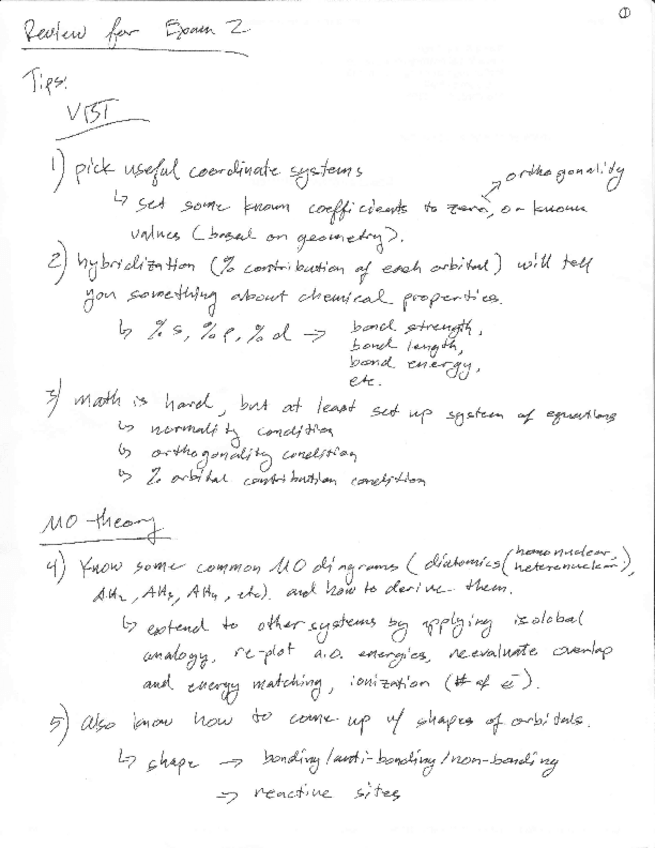 ①
Review for Exam 2
Tips:
VBT
1) pick useful coordinate systems
→ orthogonality
↳ set some known coefficients to zero, or known
values (based on geometry).
2) hybridization (% contribution of each orbital) will tell
you something about chemical properties.
↳ % s, % p, % d → bond strength,
bond length,
bond energy,
etc.
3) math is hard, but at least set up system of equations
↳ normality condition
↳ orthogonality condition
↳ % orbital contribution condition
MO-theory
4) Know some common MO diagrams (diatomics (homonuclear, heteronuclear),
AH₂, AH₃, AH₄, etc). and how to derive them.
↳ extend to other systems by applying isolobal
analogy, re-plot a.o. energies, reevaluate overlap
and energy matching, ionization (# of e⁻).
5) also know how to come up w/ shapes of orbitals.
↳ shape → bonding/anti-bonding/non-bonding
→ reactive sites